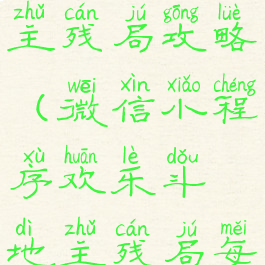 zhǔ cán jú gōng lüè
主残局攻略
wēi xìn xiǎo chéng
（微信小程
xù huān lè dǒu
序欢乐斗
dì zhǔ cán jú měi
地主残局每